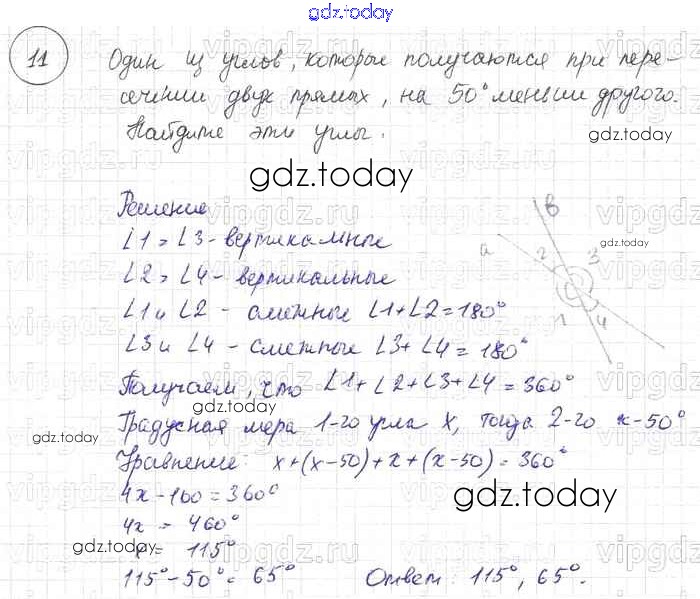 gdz.today
11 Один из углов, которые получаются при пере-
сечении двух прямых, на 50° меньше другого.
Найдите эти углы.
gdz.today
Решение
∠1 = ∠3 - вертикальные
∠2 = ∠4 - вертикальные
∠1 и ∠2 - смежные ∠1+∠2=180°
∠3 и ∠4 - смежные ∠3+∠4=180°
a
b
2
3
1
4
gdz.today
Получаем, что ∠1+∠2+∠3+∠4=360°
gdz.today
Градусная мера 1-го угла x, тогда 2-го x-50°
gdz.today
Уравнение: x+(x-50)+x+(x-50)=360°
4x-100=360°
gdz.today
4x = 460°
gdz.today
x = 115°
115°-50°=65° Ответ: 115°, 65°.
vipgdz.ru